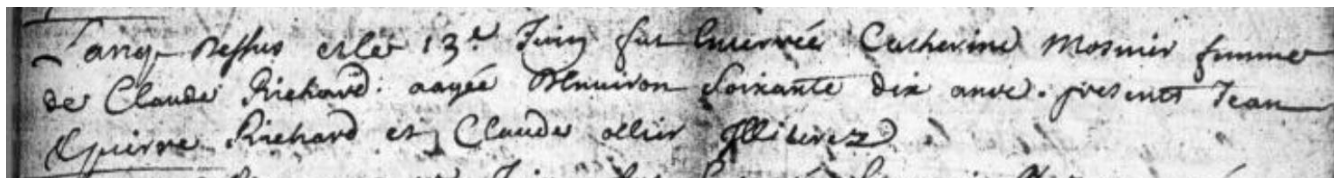 L'an que dessus et le 13e Juin fut enterrée Catherine Mosnier femme
de Claude Richard: aagée d'environ soixante dix ans. presents Jean
Pierre Richard et Claude ollier Illiterez